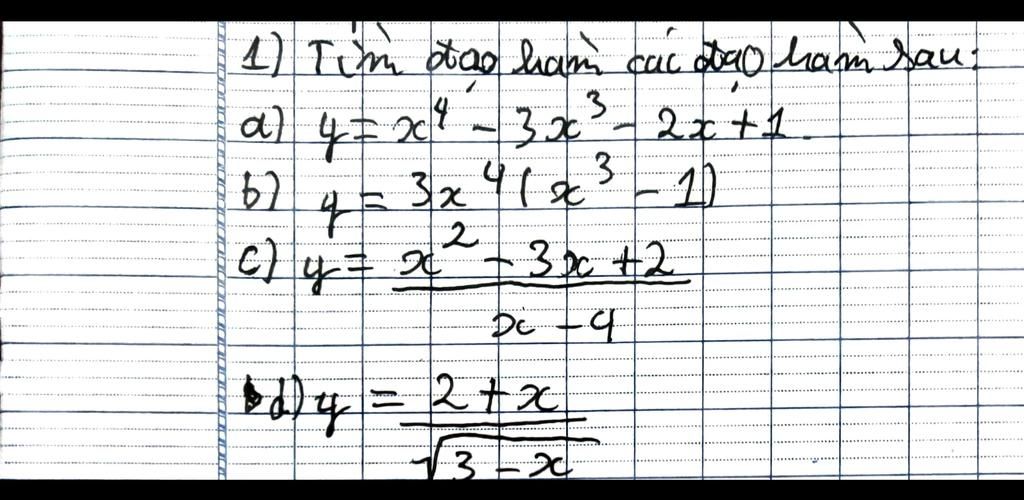 1) Tìm đạo hàm các đạo hàm sau:
a) y = x⁴ - 3x³ - 2x + 1.
b) y = 3x⁴(x³ - 1)
c) y = x² - 3x + 2
x - 4
d) y = 2 + x
√3 - x